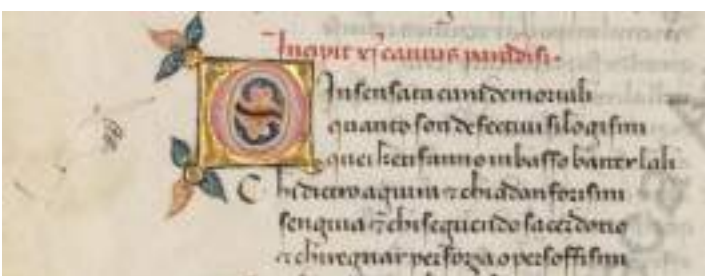 Incipit xj cantus paradisi.
O Insensata cura de mortali
quanto son defectivi silogismi
quei che ti fanno in basso batter lali
Chi dietro a giura & chi ad anforismi
sen giva & chi seguendo sacerdotio
e chi regnar per forza o per soffismi